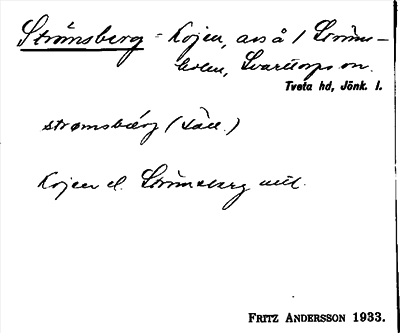 Strömsberg = Kojen, avs å / Ströms-
holm, Svarttorps sn.
Tveta hd, Jönk. l.
strømsbærj (
Kojen el. Strömsberg
FRITZ ANDERSSON 1933.